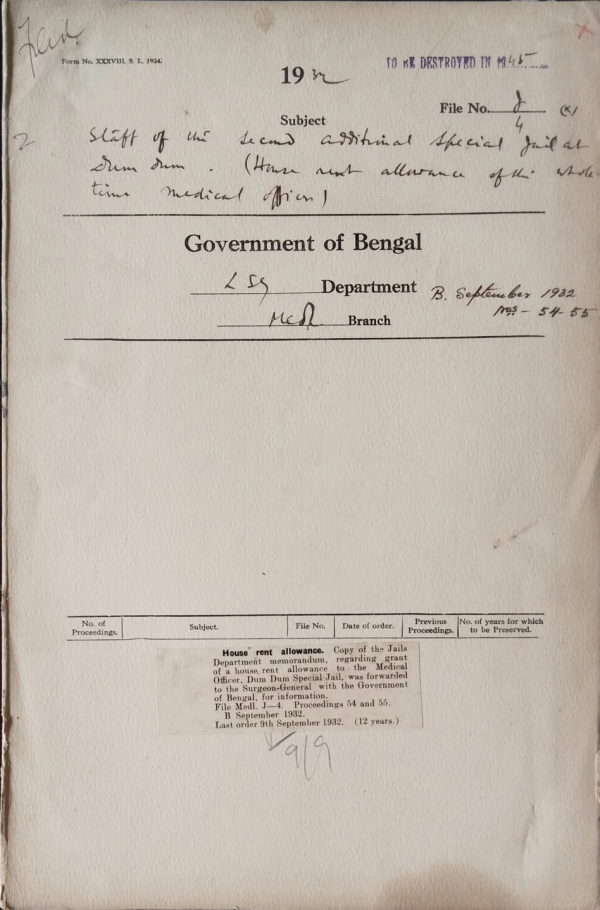 Form No. XXXVIII, S. I., 1924.
TO BE DESTROYED IN 1945
1932
File No. J/4 (K)
Subject
2 Staff of the second additional special Jail at
Dum Dum. (House rent allowance of the whole-
time medical officer)
Government of Bengal
L S G Department
B. September 1932
Medl Branch
Nos - 54-55
No. of Proceedings. Subject. File No. Date of order. Previous Proceedings. No. of years for which to be Preserved.
House rent allowance. Copy of the Jails
Department memorandum, regarding grant
of a house rent allowance to the Medical
Officer, Dum Dum Special Jail, was forwarded
to the Surgeon-General with the Government
of Bengal, for information.
File Medl. J—4. Proceedings 54 and 55.
B September 1932.
Last order 9th September 1932. (12 years.)
9/9